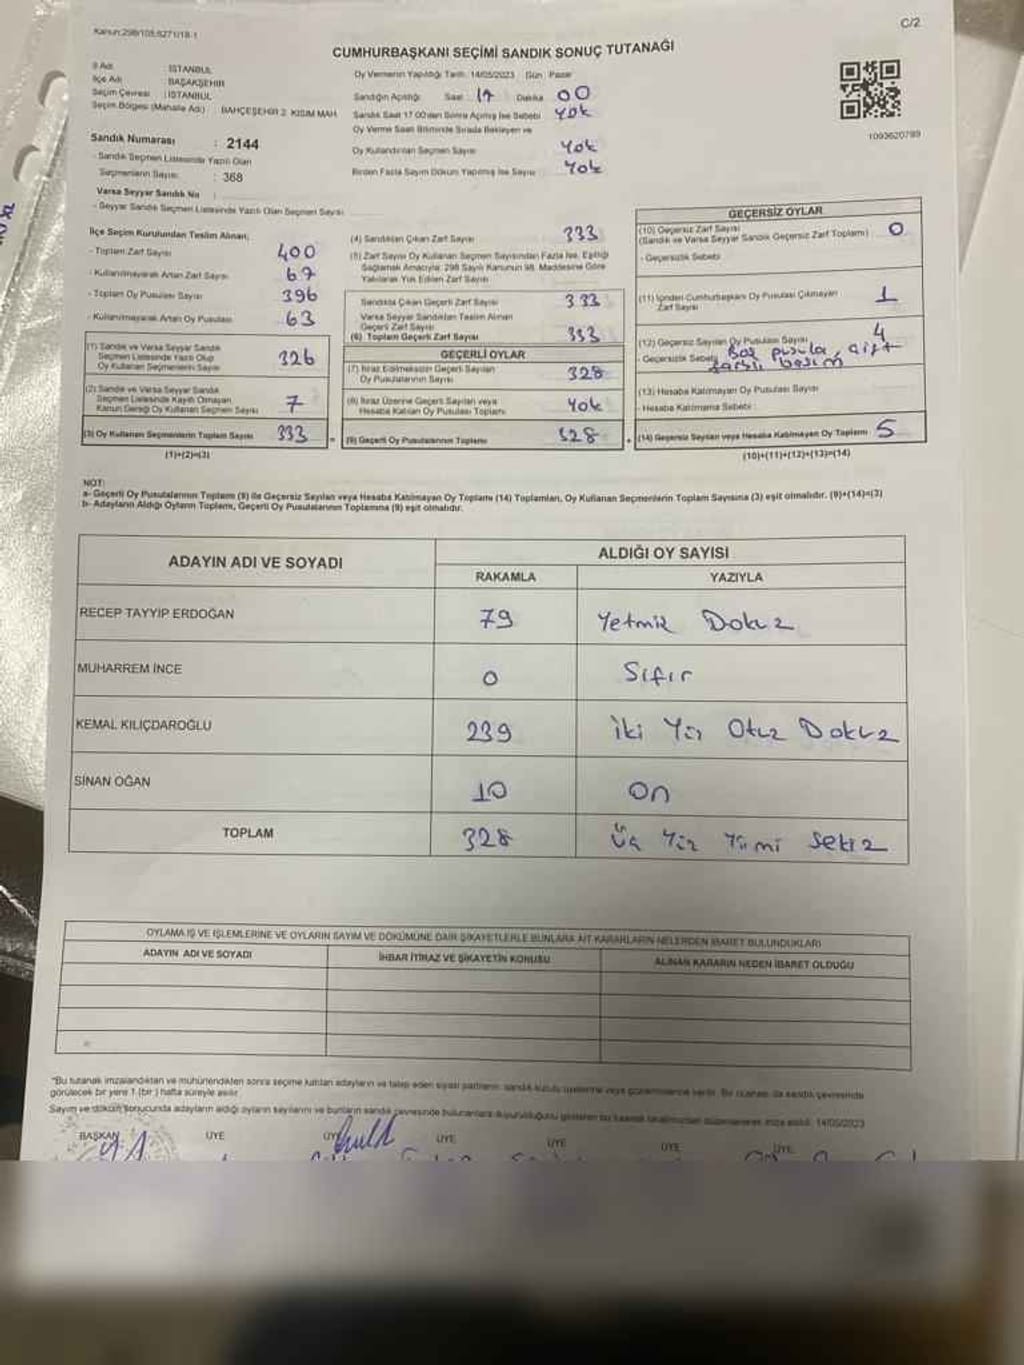 Kanun:298/105,6271/18-1
C/2
CUMHURBAŞKANI SEÇİMİ SANDIK SONUÇ TUTANAĞI
İl Adı : İSTANBUL
İlçe Adı : BAŞAKŞEHİR
Seçim Çevresi : İSTANBUL
Seçim Bölgesi (Mahalle Adı) : BAHÇEŞEHİR 2. KISIM MAH.
Sandık Numarası : 2144
- Sandık Seçmen Listesinde Yazılı Olan
Seçmenlerin Sayısı : 368
Varsa Seyyar Sandık No :
- Seyyar Sandık Seçmen Listesinde Yazılı Olan Seçmen Sayısı
Oy Vermenin Yapıldığı Tarih: 14/05/2023 Gün : Pazar
Sandığın Açıldığı Saat : 17 Dakika 00
Sandık Saat 17.00'den Sonra Açılmış İse Sebebi Yok
Oy Verme Saati Bitiminde Sırada Bekleyen ve
Oy Kullandırılan Seçmen Sayısı Yok
Birden Fazla Sayım Döküm Yapılmış İse Sayısı Yok
1093620789
İlçe Seçim Kurulundan Teslim Alınan;
- Toplam Zarf Sayısı 400
- Kullanılmayarak Artan Zarf Sayısı 67
- Toplam Oy Pusulası Sayısı 396
- Kullanılmayarak Artan Oy Pusulası 63
(1) Sandık ve Varsa Seyyar Sandık
Seçmen Listesinde Yazılı Olup
Oy Kullanan Seçmenlerin Sayısı 326
(2) Sandık ve Varsa Seyyar Sandık
Seçmen Listesinde Kayıtlı Olmayan
Kanun Gereği Oy Kullanan Seçmen Sayısı 7
(3) Oy Kullanan Seçmenlerin Toplam Sayısı 333
(1)+(2)=(3)
(4) Sandıktan Çıkan Zarf Sayısı 333
(5) Zarf Sayısı Oy Kullanan Seçmen Sayısından Fazla İse, Eşitliği
Sağlamak Amacıyla; 298 Sayılı Kanunun 98. Maddesine Göre
Yakılarak Yok Edilen Zarf Sayısı
Sandıkta Çıkan Geçerli Zarf Sayısı 333
Varsa Seyyar Sandıktan Teslim Alınan
Geçerli Zarf Sayısı
(6) Toplam Geçerli Zarf Sayısı 333
GEÇERLİ OYLAR
(7) İtiraz Edilmeksizin Geçerli Sayılan
Oy Pusulalarının Sayısı 328
(8) İtiraz Üzerine Geçerli Sayılan veya
Hesaba Katılan Oy Pusulası Toplamı Yok
(9) Geçerli Oy Pusulalarının Toplamı 328
GEÇERSİZ OYLAR
(10) Geçersiz Zarf Sayısı
(Sandık ve Varsa Seyyar Sandık Geçersiz Zarf Toplamı) 0
- Geçersizlik Sebebi
(11) İçinden Cumhurbaşkanı Oy Pusulası Çıkmayan
Zarf Sayısı 1
(12) Geçersiz Sayılan Oy Pusulası Sayısı 4
- Geçersizlik Sebebi Boş pusula, çift
basım
(13) Hesaba Katılmayan Oy Pusulası Sayısı
- Hesaba Katılmama Sebebi :
(14) Geçersiz Sayılan veya Hesaba Katılmayan Oy Toplamı 5
(10)+(11)+(12)+(13)=(14)
NOT:
a- Geçerli Oy Pusulalarının Toplamı (9) ile Geçersiz Sayılan veya Hesaba Katılmayan Oy Toplamı (14) Toplamları, Oy Kullanan Seçmenlerin Toplam Sayısına (3) eşit olmalıdır. (9)+(14)=(3)
b- Adayların Aldığı Oyların Toplamı, Geçerli Oy Pusulalarının Toplamına (9) eşit olmalıdır.
ADAYIN ADI VE SOYADI
ALDIĞI OY SAYISI
RAKAMLA YAZIYLA
RECEP TAYYIP ERDOĞAN 79 Yetmiş Dokuz
MUHARREM İNCE 0 Sıfır
KEMAL KILIÇDAROĞLU 239 İki Yüz Otuz Dokuz
SİNAN OĞAN 10 On
TOPLAM 328 Üç Yüz Yirmi Sekiz
OYLAMA İŞ VE İŞLEMLERİNE VE OYLARIN SAYIM VE DÖKÜMÜNE DAİR ŞİKAYETLERLE BUNLARA AİT KARARLARIN NELERDEN İBARET BULUNDUKLARI
ADAYIN ADI VE SOYADI İHBAR İTİRAZ VE ŞİKAYETİN KONUSU ALINAN KARARIN NEDEN İBARET OLDUĞU
"Bu tutanak imzalandıktan ve mühürlendikten sonra seçime katılan adayların ve talep eden siyasi partilerin sandık kurulu üyelerine veya gözlemcilerine verilir. Bir nüshası da sandık çevresinde
görülecek bir yere 1 (bir) hafta süreyle asılır.
Sayım ve döküm sonucunda adayların aldığı oyların sayılarını ve bunların sandık çevresinde bulunanlara duyurulduğunu gösteren bu tutanak tarafımızdan düzenlenerek imza edildi. 14/05/2023
BAŞKAN ÜYE ÜYE ÜYE ÜYE ÜYE ÜYE